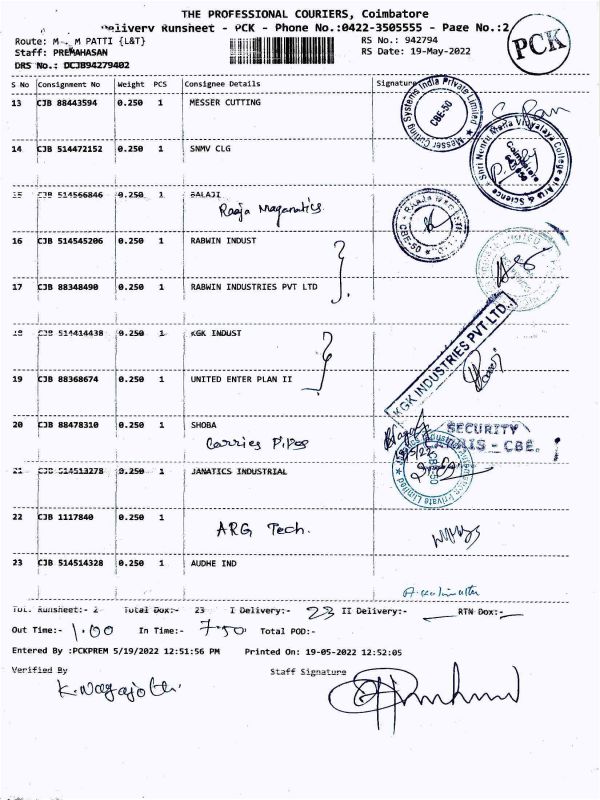 THE PROFESSIONAL COURIERS, Coimbatore
Delivery Runsheet - PCK - Phone No.:0422-3505555 - Page No.:2
Route: M PATTI {L&T}
RS No.: 942794
Staff: PREMAHASAN
RS Date: 19-May-2022
DRS No.: DCJB94279402
PCK
S No Consignment No Weight PCS Consignee Details Signature
13 CJB 88443594 0.250 1 MESSER CUTTING
Messer Cutting Systems India Private Limited
CBE-50
14 CJB 514472152 0.250 1 SNMV CLG
Shri Nehru Maha Vidyalaya College of Arts & Science
Coimbatore
641 050
15 CJB 514566846 0.250 1 BALAJI
Raaja Magnatics.
CBE-50
16 CJB 514545206 0.250 1 RABWIN INDUST
17 CJB 88348490 0.250 1 RABWIN INDUSTRIES PVT LTD
18 CJB 514414438 0.250 1 KGK INDUST
KGK INDUSTRIES PVT LTD.,
19 CJB 88368674 0.250 1 UNITED ENTER PLAN II
20 CJB 88478310 0.250 1 SHOBA
Carries Pipes
SECURITY
- CBE.
21 CJB 514513278 0.250 1 JANATICS INDUSTRIAL
Private Limited
CBE-50
22 CJB 1117840 0.250 1
ARG Tech.
23 CJB 514514328 0.250 1 AUDHE IND
Tot. Runsheet:- 2 Total Dox:- 23 I Delivery:- 23 II Delivery:- RTN Dox:-
Out Time:- 1.00 In Time:- 7.50 Total POD:-
Entered By :PCKPREM 5/19/2022 12:51:56 PM Printed On: 19-05-2022 12:52:05
Verified By Staff Signature
K. Nagajothi